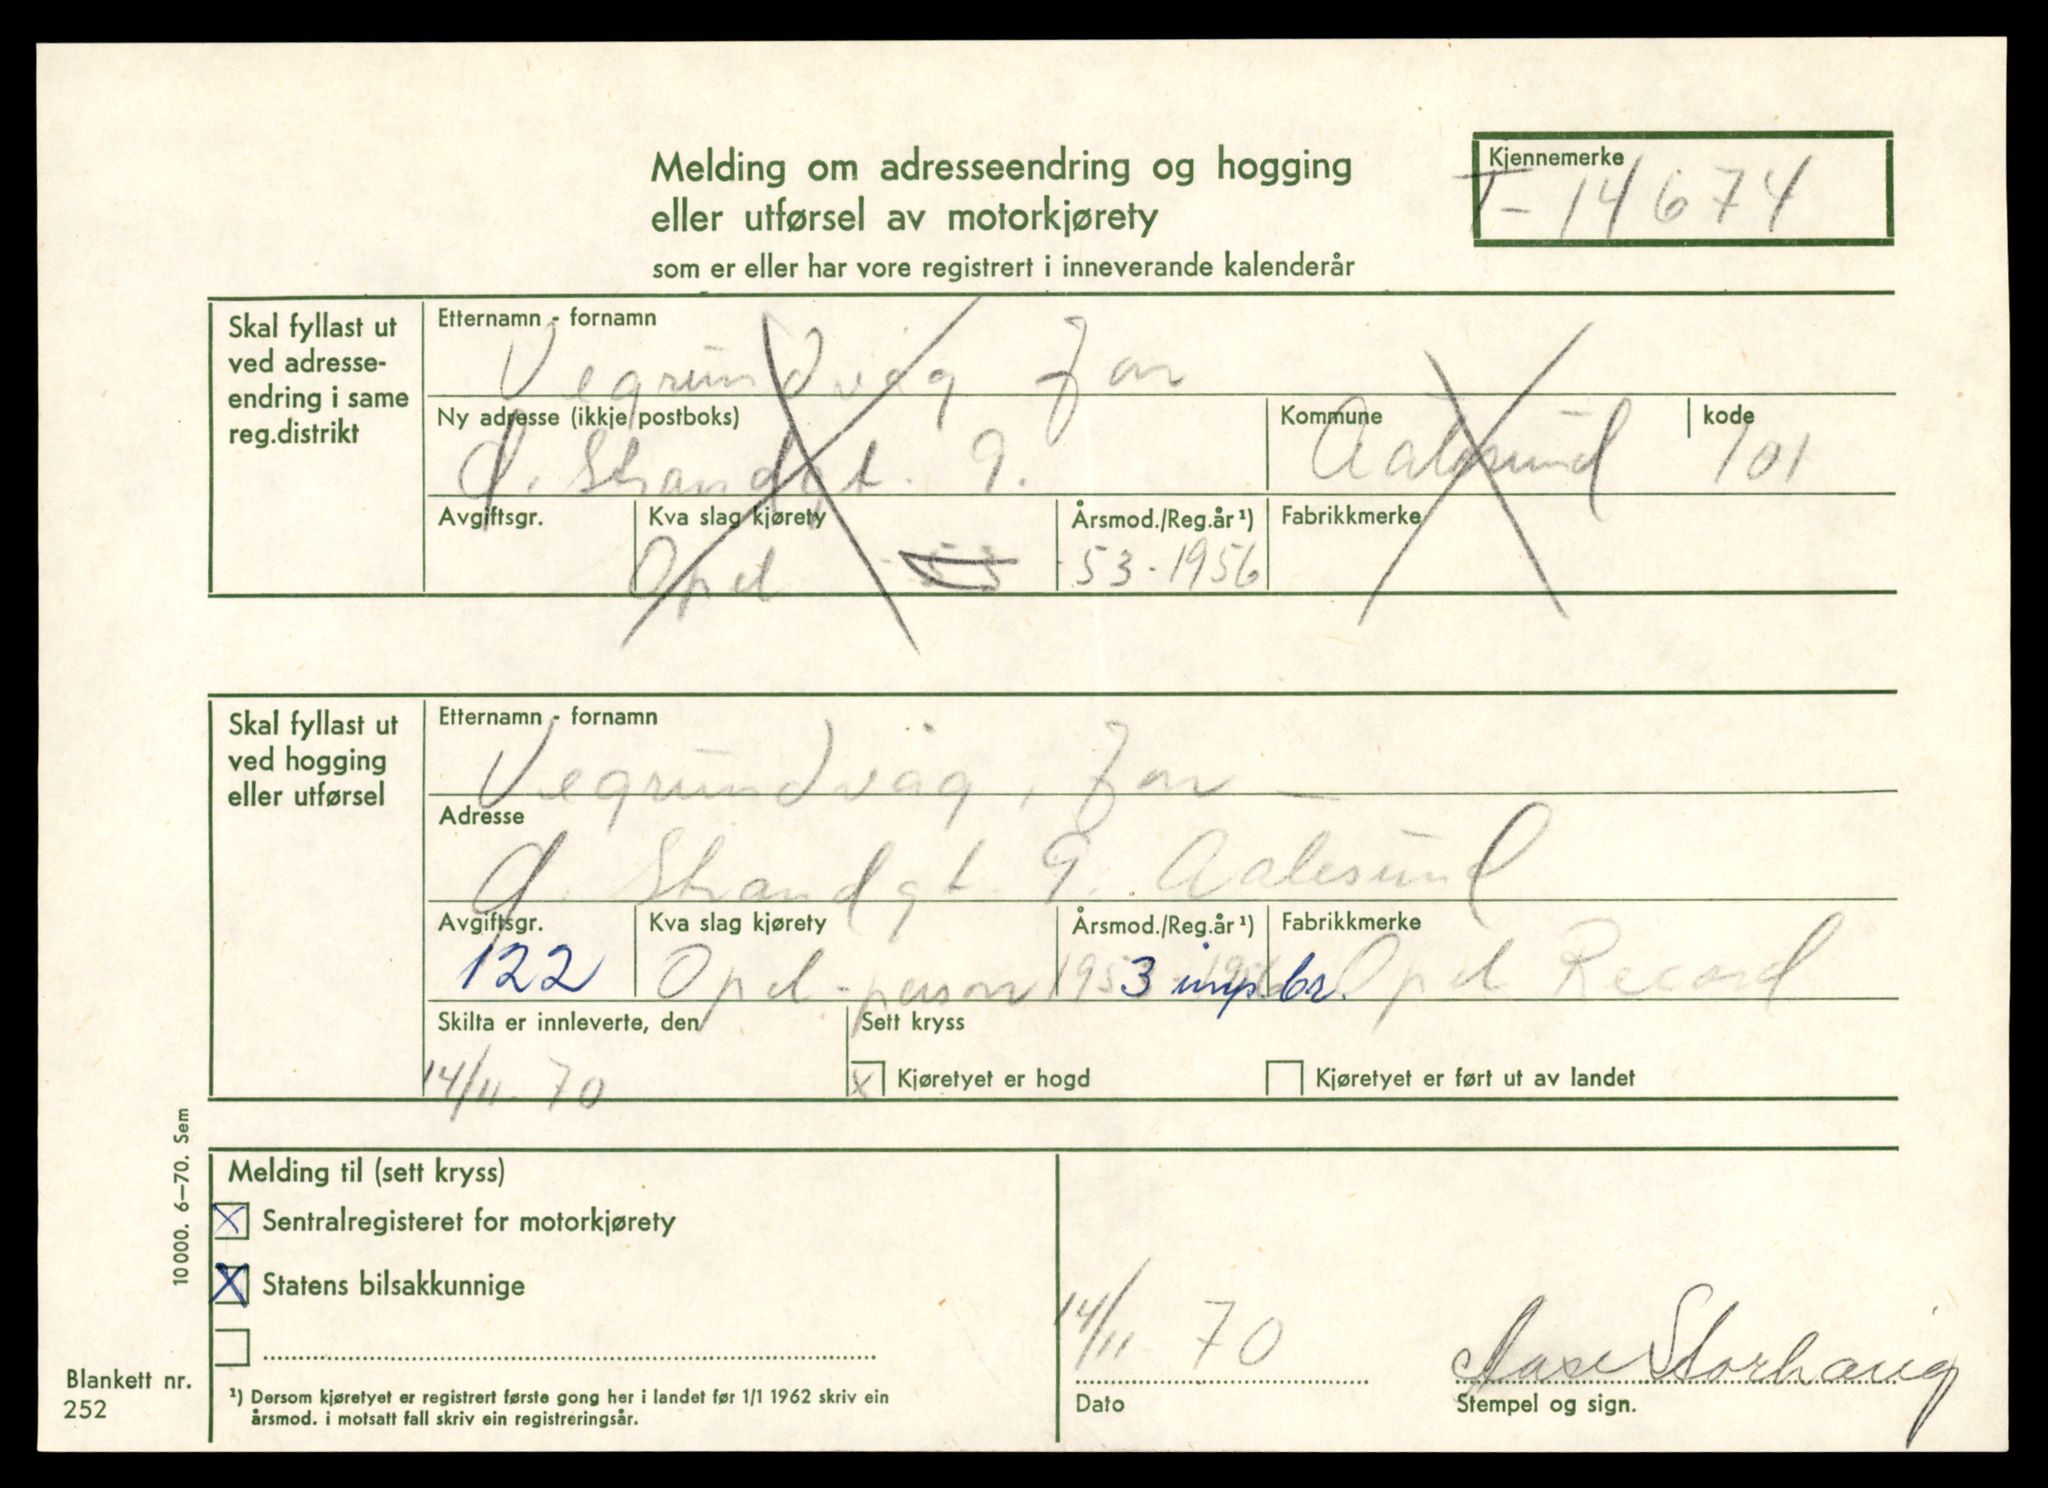 Melding om adresseendring og hogging
eller utførsel av motorkjørety
som er eller har vore registrert i inneverande kalenderår
Kjennemerke
T-14674
Skal fyllast ut
ved adresse-
endring i same
reg.distrikt
Etternamn - fornamn
Vegsundvåg Jon
Ny adresse (ikkje postboks)
Strandgt. 9.
Kommune
Aalesund
kode
1501
Avgiftsgr.
Kva slag kjørety
Opel
Årsmod./Reg.år ¹)
53-1956
Fabrikkmerke
Skal fyllast ut
ved hogging
eller utførsel
Etternamn - fornamn
Vegsundvåg, Jon
Adresse
Strandgt. 9. Aalesund
Avgiftsgr.
122
Kva slag kjørety
Opel - person
Årsmod./Reg.år ¹)
1953 imp br.
Fabrikkmerke
Opel Record
Skilta er innleverte, den
14/11-70
Sett kryss
x Kjøretyet er hogd
Kjøretyet er ført ut av landet
Melding til (sett kryss)
X Sentralregisteret for motorkjørety
X Statens bilsakkunnige
¹) Dersom kjøretyet er registrert første gong her i landet før 1/1 1962 skriv ein
årsmod. i motsatt fall skriv ein registreringsår.
14/11-70
Dato
Aase Storhaug
Stempel og sign.
10000. 6-70. Sem
Blankett nr.
252